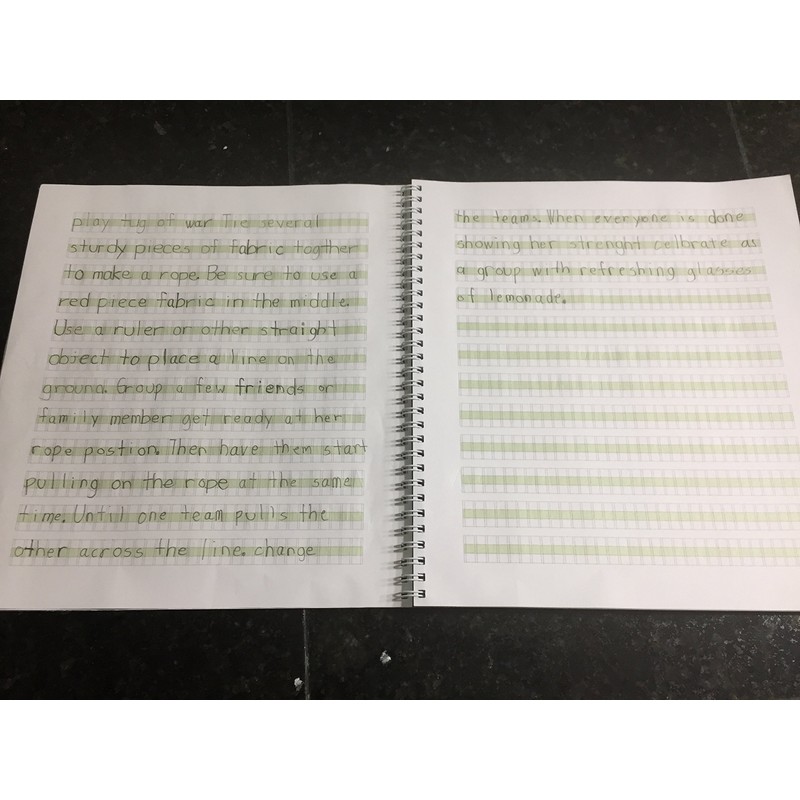 play tug of war Tie several
sturdy pieces of fabric togther
to make a rope. Be sure to use a
red piece fabric in the middle.
Use a ruler or other straight
object to place a line on the
ground. Group a few friends or
family member get ready at her
rope postion. Then have them start
pulling on the rope at the same
time. Until one team pulls the
other across the line. change
the teams. When everyone is done
showing her strenght celbrate as
a group with refreshing glasses
of lemonade.